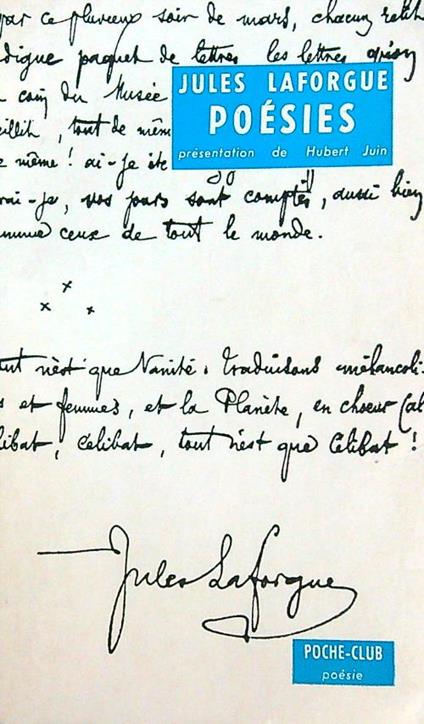 par ce pluvieux soir de mars, chacun
digue paquet de lettres les lettres qu'on
coin du Musée
JULES LAFORGUE
POÉSIES
présentation de Hubert Juin
eillit, tout de mêm
e même ! ai-je été
rai-je, vos jours sont comptés, aussi bien
comme ceux de tout le monde.
x x x
tout n'est que Vanité. traduisons mélancoli-
s et femmes, et la Planète, en choeur
libat, célibat, tout n'est que Célibat !
Jules Laforgue
POCHE-CLUB
poésie